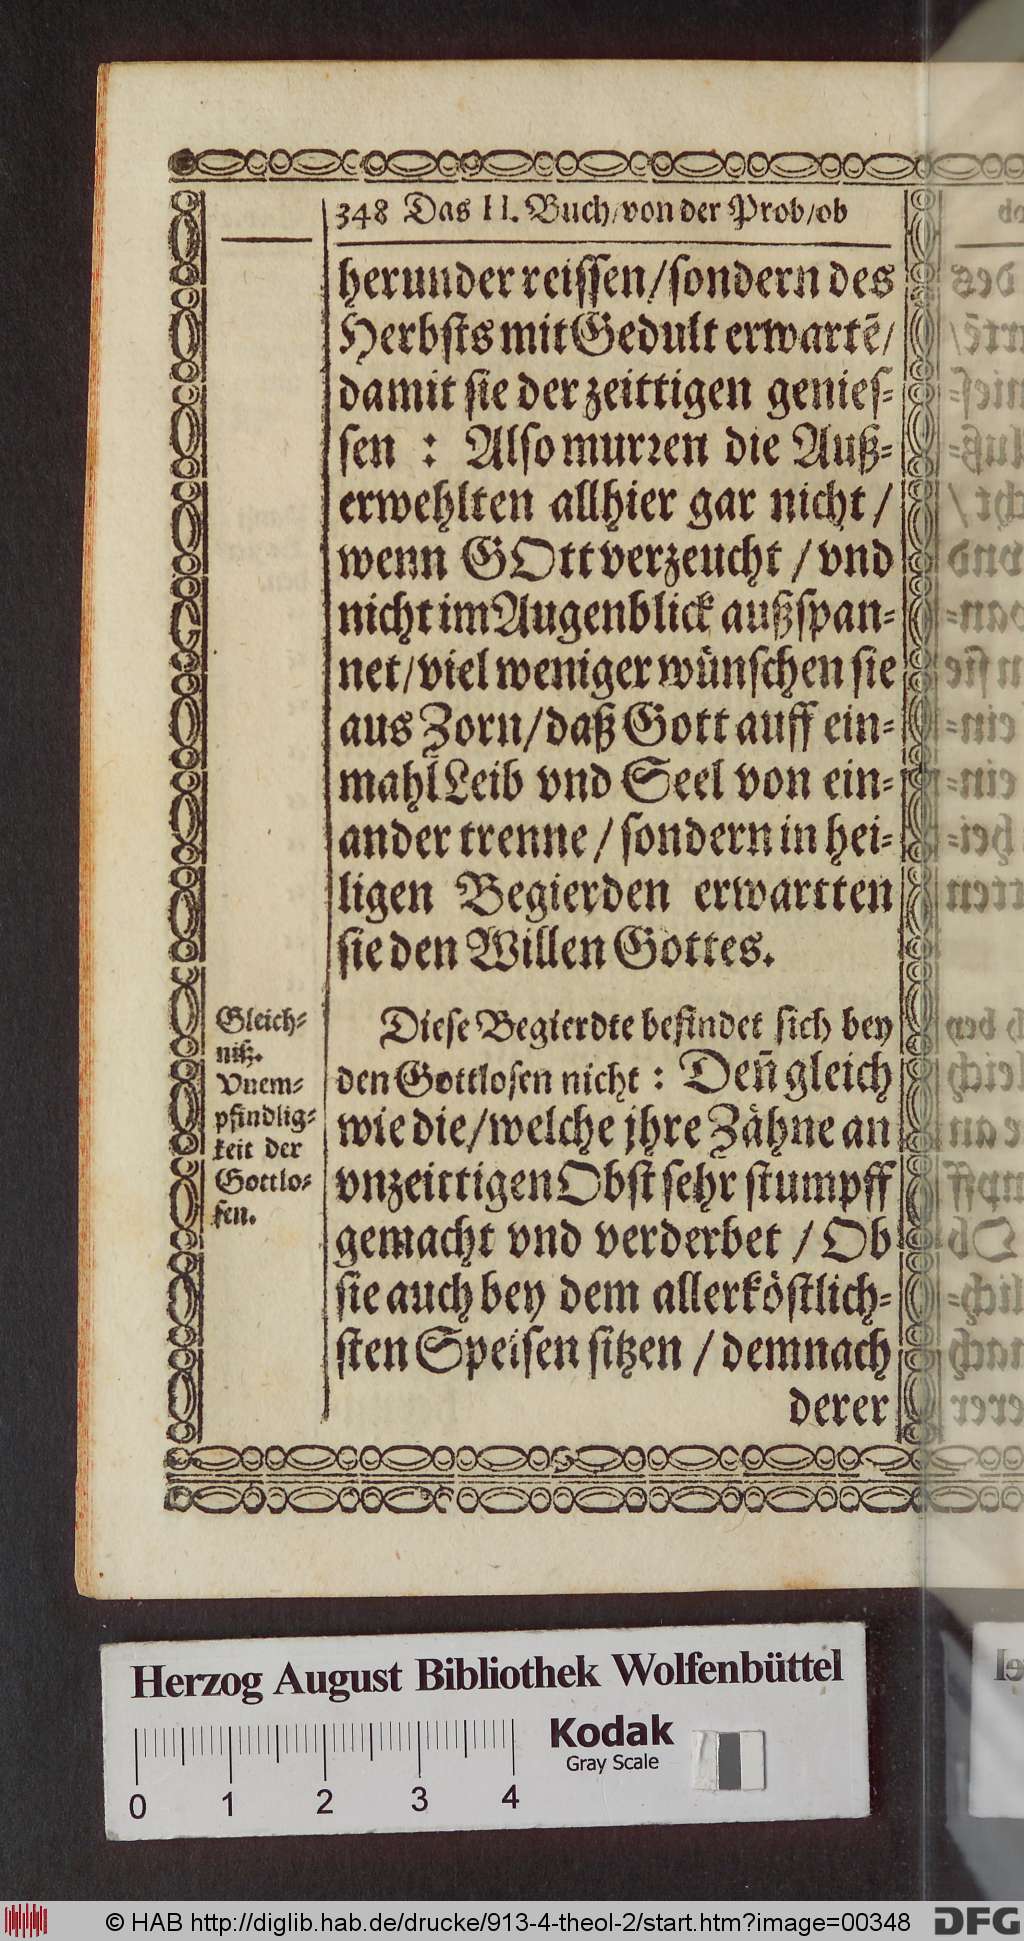 348 Das II. Buch/von der Prob/ob
herunder reissen/sondern des
Herbsts mit Gedult erwartẽ/
damit sie der zeittigen genies-
sen : Also murren die Auß-
erwehlten allhier gar nicht /
wenn GOtt verzeucht / vnd
nicht im Augenblick außspan-
net/viel weniger wünschen sie
aus Zorn/daß Gott auff ein-
mahl Leib vnd Seel von ein-
ander trenne / sondern in hei-
ligen Begierden erwartten
sie den Willen Gottes.
Gleich-
niß.
Vnem-
pfindlig-
keit der
Gottlo-
sen.
Diese Begierdte befindet sich bey
den Gottlosen nicht : Deñ gleich
wie die/welche jhre Zähne an
vnzeittigen Obst sehr stumpff
gemacht vnd verderbet / Ob
sie auch bey dem allerköstlich-
sten Speisen sitzen / demnach
derer
Herzog August Bibliothek Wolfenbüttel
Kodak
Gray Scale
0 1 2 3 4
© HAB http://diglib.hab.de/drucke/913-4-theol-2/start.htm?image=00348
DFG